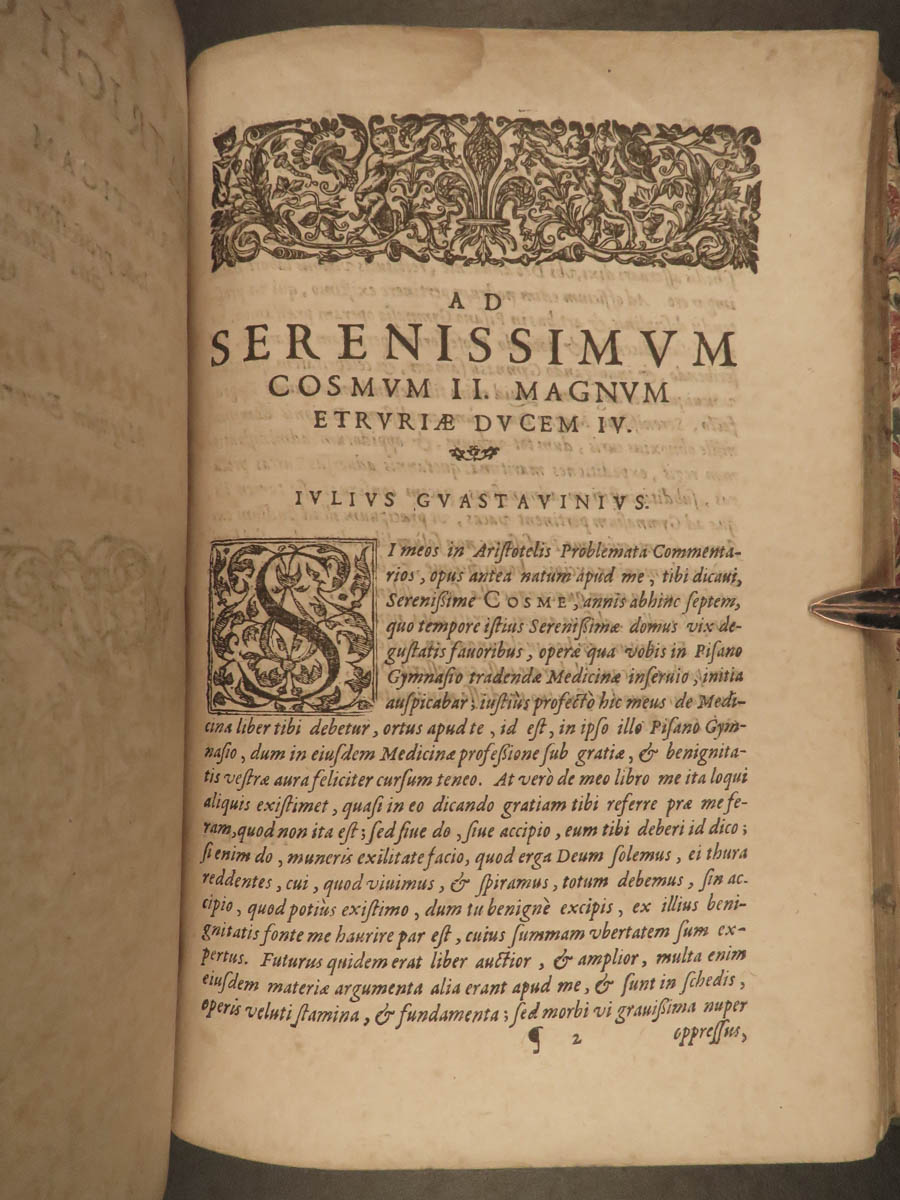 AD
SERENISSIMVM
COSMVM II. MAGNVM
ETRVRIÆ DVCEM IV.
IVLIVS GVASTAVINIVS.
SI meos in Ariſtotelis Problemata Commenta-
rios, opus antea natum apud me, tibi dicaui,
Sereniſſime COSME, annis abhinc ſeptem,
quo tempore iſtius Sereniſſimæ domus vix de-
guſtatis fauoribus, operæ qua vobis in Piſano
Gymnaſio tradendæ Medicinæ inſeruio, initia
auſpicabar; iuſtiùs profectò hic meus de Medi-
cina liber tibi debetur, ortus apud te, id eſt, in ipſo illo Piſano Gym-
naſio, dum in eiuſdem Medicinæ profeſſione ſub gratiæ, & benignita-
tis veſtræ aura feliciter curſum teneo. At verò de meo libro me ita loqui
aliquis exiſtimet, quaſi in eo dicando gratiam tibi referre præ me fe-
ram, quod non ita eſt; ſed ſiue do, ſiue accipio, eum tibi deberi id dico;
ſi enim do, muneris exilitate facio, quod erga Deum ſolemus, ei thura
reddentes, cui, quod viuimus, & ſpiramus, totum debemus, ſin ac-
cipio, quod potiùs exiſtimo, dum tu benignè excipis, ex illius beni-
gnitatis fonte me haurire par eſt, cuius ſummam vbertatem ſum ex-
pertus. Futurus quidem erat liber auctior, & amplior, multa enim
eiuſdem materiæ argumenta alia erant apud me, & ſunt in ſchedis,
operis veluti ſtamina, & fundamenta; ſed morbi vi grauiſſima nuper
¶ 2 oppreſſus,